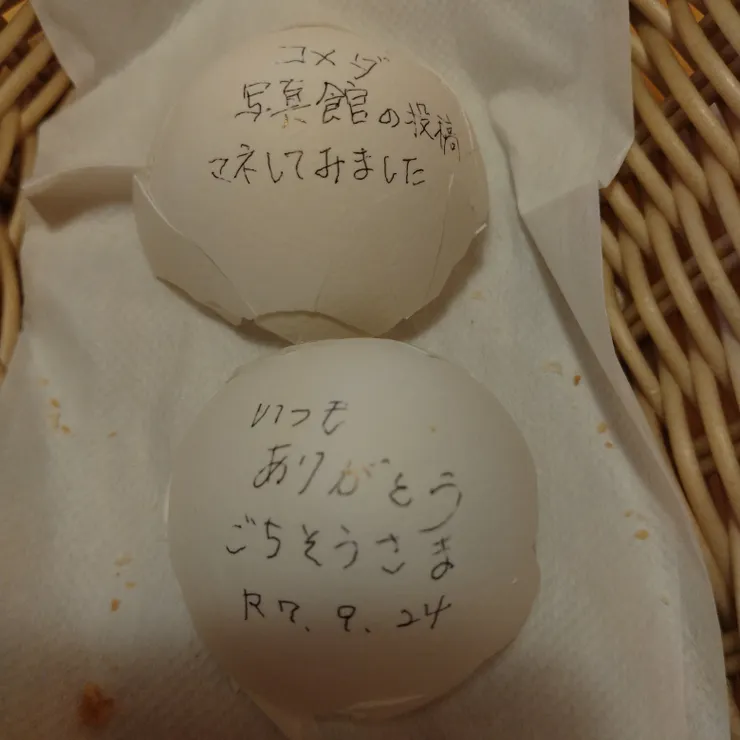 コメダ
写真館の投稿
マネしてみました
いつも
ありがとう
ごちそうさま
R7.9.24